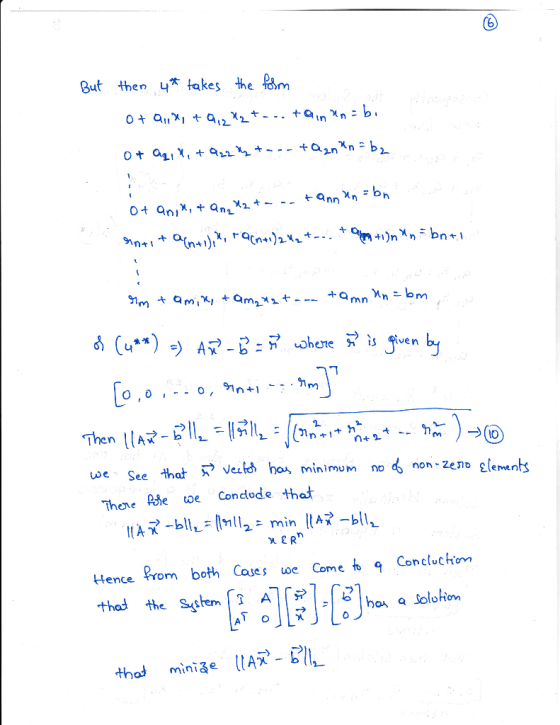 ⑥
But then 4** takes the form
0 + a₁₁x₁ + a₁₂x₂ + --- + a₁ₙxₙ = b₁
0 + a₂₁x₁ + a₂₂x₂ + --- + a₂ₙxₙ = b₂
⋮
0 + aₙ₁x₁ + aₙ₂x₂ + --- + aₙₙxₙ = bₙ
rₙ₊₁ + a₍ₙ₊₁₎₁x₁ + a₍ₙ₊₁₎₂x₂ + --- + a₍ₙ₊₁₎ₙxₙ = bₙ₊₁
⋮
rₘ + aₘ₁x₁ + aₘ₂x₂ + --- + aₘₙxₙ = bₘ
of (4**) ⇒ Ax⃗ - b⃗ = r⃗ where r⃗ is given by
[0, 0, --- 0, rₙ₊₁ --- rₘ]ᵀ
Then ||Ax⃗ - b⃗||₂ = ||r⃗||₂ = √(r²ₙ₊₁ + r²ₙ₊₂ + -- r²ₘ) → ⑩
we See that r⃗ vector has minimum no of non-zero Elements
There fore we Conclude that
||Ax⃗ - b||₂ = ||r||₂ = min ||Ax⃗ - b||₂
x ∈ Rⁿ
Hence from both Cases we Come to a Concluction
that the System [I A; Aᵀ 0] [r⃗; x⃗] = [b⃗; 0] has a Solution
that minize ||Ax⃗ - b⃗||₂